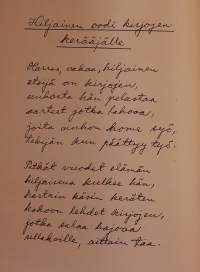 Hiljainen oodi kirjojen
kerääjälle
Harras, vakaa, hiljainen
etsijä on kirjojen,
unhosta hän pelastaa
aarteet jotka lahoaa,
joita unhon home syö,
tekijän kun päättyy työ.
Pitkät vuodet elämän
hiljaisna kulkee hän,
hartain käsin keräten
kokoon lehdet kirjojen,
jotka salaa hajoaa
ullakoille, aittain taa.